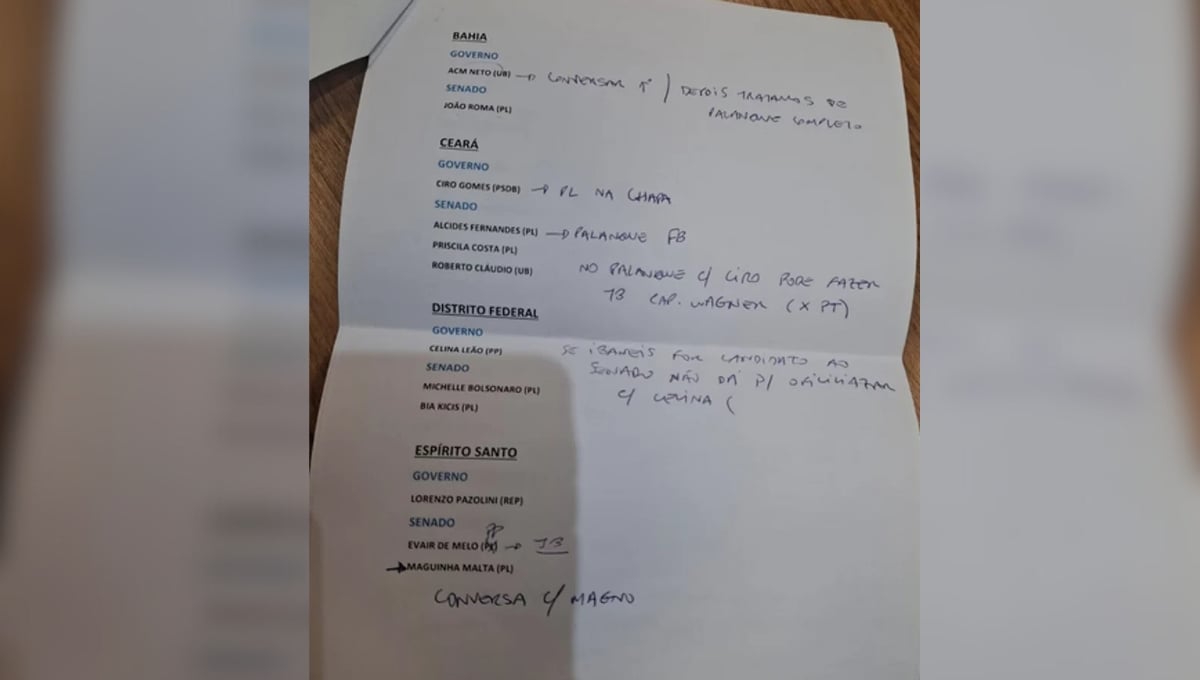 BAHIA
GOVERNO
ACM NETO (UB) → CONVERSAR 1º / DEPOIS TRATAMOS DE
PALANQUE COMPLETO
SENADO
JOÃO ROMA (PL)
CEARÁ
GOVERNO
CIRO GOMES (PSDB) → PL NA CHAPA
SENADO
ALCIDES FERNANDES (PL) → PALANQUE FB
PRISCILA COSTA (PL)
ROBERTO CLÁUDIO (UB)
NO PALANQUE C/ CIRO PODE FAZER
CAP. WAGNER (X PT)
DISTRITO FEDERAL
GOVERNO
CELINA LEÃO (PP)
SENADO
MICHELLE BOLSONARO (PL)
BIA KICIS (PL)
SE IBANEIS FOR CANDIDATO AO
SENADO NÃO DÁ P/ OFICILIAZAR
C/ CELINA (
ESPÍRITO SANTO
GOVERNO
LORENZO PAZOLINI (REP)
SENADO
PP
EVAIR DE MELO → JB
→ MAGUINHA MALTA (PL)
CONVERSA C/ MAGNO